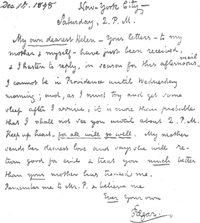 Dec 16. 1848
New-York City —
Saturday, 2. P.M.
My own dearest Helen — Your letters — to my
mother & myself — have just been received,
& I hasten to reply, in season for this afternoon's
mail.
I cannot be in Providence until Wednesday
morning; and, as I must try and get some
sleep after I arrive, it is more than probable
that I shall not see you until about 2. P.M.
Keep up heart — for all will go well. My mother
sends her dearest love and says she will re-
turn good for evil & treat you much better
than your mother has treated me.
Remember me to Mr. P. & believe me
Ever your own
Edgar.